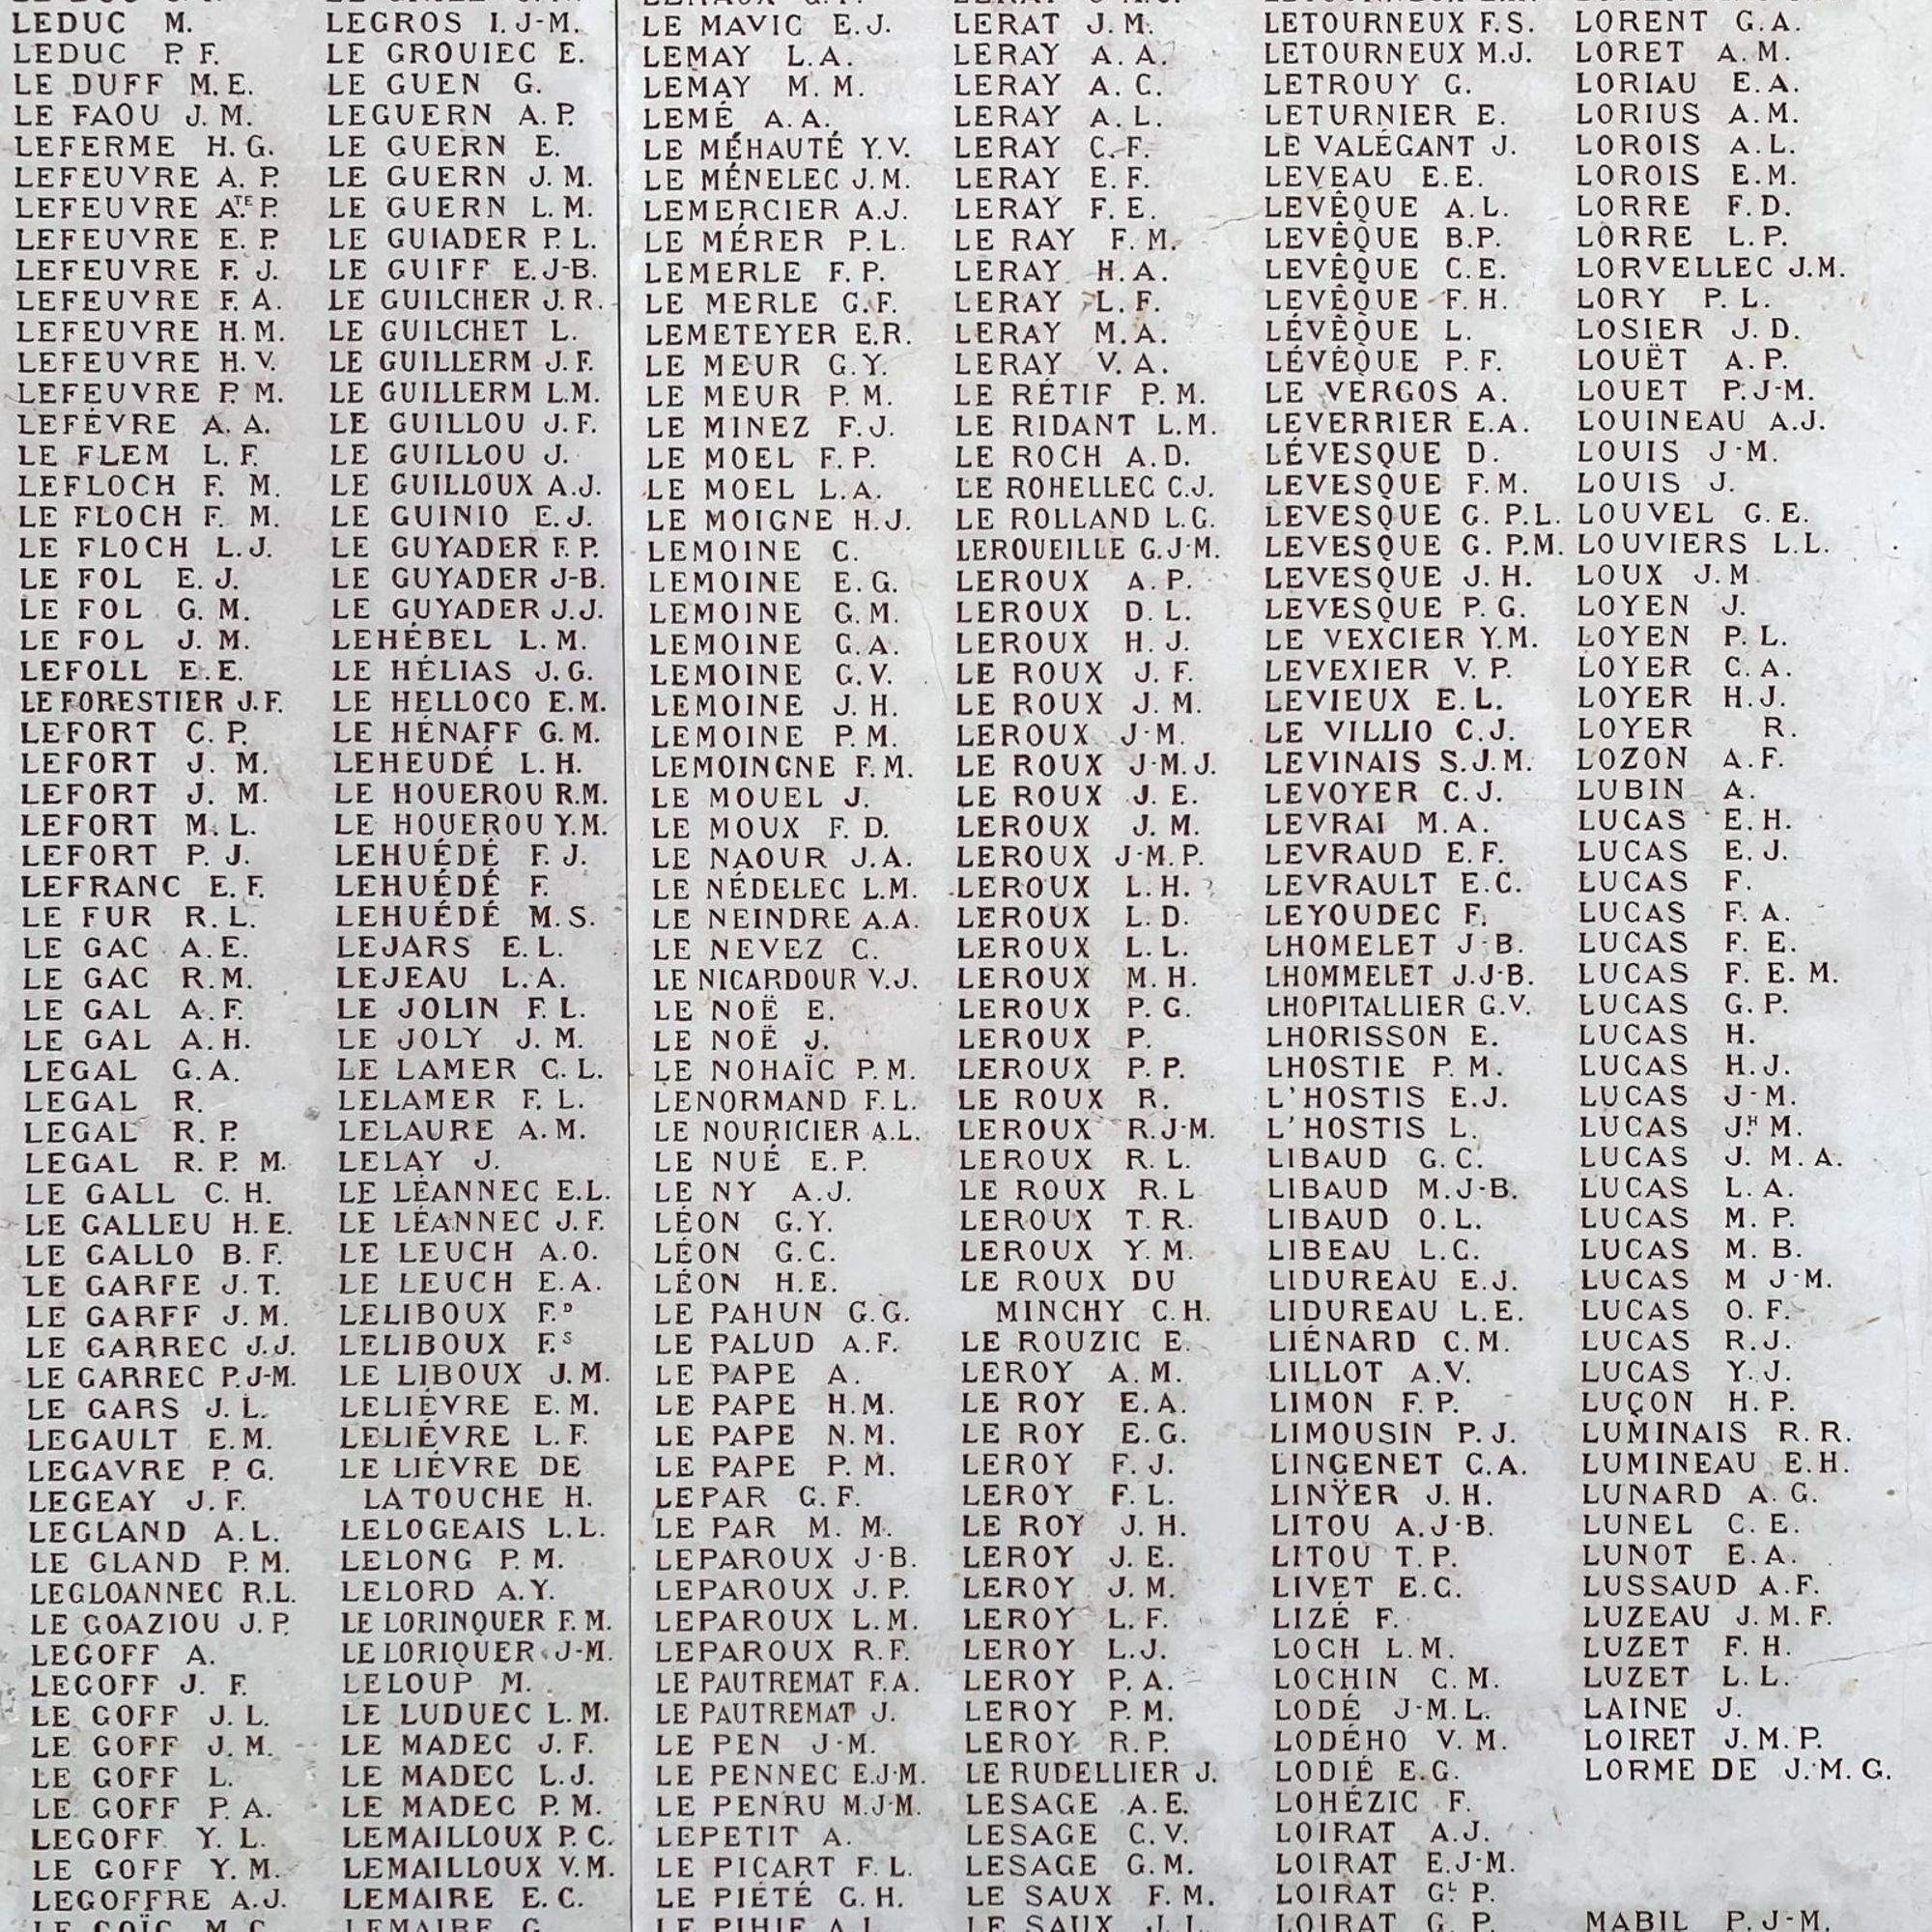 LEDUC M.
LEDUC P. F.
LE DUFF M. E.
LE FAOU J. M.
LEFERME H. G.
LEFEUVRE A. P.
LEFEUVRE A.TE P.
LEFEUVRE E. P.
LEFEUVRE F. J.
LEFEUVRE F. A.
LEFEUVRE H. M.
LEFEUVRE H. V.
LEFEUVRE P. M.
LEFÈVRE A. A.
LE FLEM L. F.
LEFLOCH F. M.
LE FLOCH F. M.
LE FLOCH L. J.
LE FOL E. J.
LE FOL G. M.
LE FOL J. M.
LEFOLL E. E.
LE FORESTIER J. F.
LEFORT C. P.
LEFORT J. M.
LEFORT J. M.
LEFORT M. L.
LEFORT P. J.
LEFRANC E. F.
LE FUR R. L.
LE GAC A. E.
LE GAC R. M.
LE GAL A. F.
LE GAL A. H.
LEGAL G. A.
LEGAL R.
LEGAL R. P.
LEGAL R. P. M.
LE GALL C. H.
LE GALLEU H. E.
LE GALLO B. F.
LE GARFE J. T.
LE GARFF J. M.
LE GARREC J. J.
LE GARREC P. J-M.
LE GARS J. L.
LEGAULT E. M.
LEGAVRE P. G.
LEGEAY J. F.
LEGLAND A. L.
LE GLAND P. M.
LEGLOANNEC R. L.
LE GOAZIOU J. P.
LEGOFF A.
LEGOFF J. F.
LE GOFF J. L.
LE GOFF J. M.
LE GOFF L.
LE GOFF P. A.
LEGOFF Y. L.
LE GOFF Y. M.
LEGOFFRE A. J.
LE GOÏC M. C.
LEGROS I. J-M.
LE GROUIEC E.
LE GUEN G.
LEGUERN A. P.
LE GUERN E.
LE GUERN J. M.
LE GUERN L. M.
LE GUIADER P. L.
LE GUIFF E. J-B.
LE GUILCHER J. R.
LE GUILCHET L.
LE GUILLERM J. F.
LE GUILLERM L. M.
LE GUILLOU J. F.
LE GUILLOU J.
LE GUILLOUX A. J.
LE GUINIO E. J.
LE GUYADER F. P.
LE GUYADER J-B.
LE GUYADER J. J.
LEHÉBEL L. M.
LE HÉLIAS J. G.
LE HELLOCO E. M.
LE HÉNAFF G. M.
LEHEUDÉ L. H.
LE HOUEROU R. M.
LE HOUEROU Y. M.
LEHUÉDÉ F. J.
LEHUÉDÉ F.
LEHUÉDÉ M. S.
LEJARS E. L.
LEJEAU L. A.
LE JOLIN F. L.
LE JOLY J. M.
LE LAMER C. L.
LELAMER F. L.
LELAURE A. M.
LELAY J.
LE LÉANNEC E. L.
LE LÉANNEC J. F.
LE LEUCH A. O.
LE LEUCH E. A.
LELIBOUX F.D
LELIBOUX F.S
LE LIBOUX J. M.
LELIÈVRE E. M.
LELIÈVRE L. F.
LE LIÈVRE DE
LA TOUCHE H.
LELOGEAIS L. L.
LELONG P. M.
LELORD A. Y.
LE LORINQUER F. M.
LE LORIQUER J-M.
LELOUP M.
LE LUDUEC L. M.
LE MADEC J. F.
LE MADEC L. J.
LE MADEC P. M.
LEMAILLOUX P. C.
LEMAILLOUX V. M.
LEMAIRE E. C.
LEMAIRE G.
LE MAVIC E. J.
LEMAY L. A.
LEMAY M. M.
LEMÉ A. A.
LE MÉHAUTÉ Y. V.
LE MÉNELEC J. M.
LEMERCIER A. J.
LE MÉRER P. L.
LEMERLE F. P.
LE MERLE G. F.
LEMETEYER E. R.
LE MEUR G. Y.
LE MEUR P. M.
LE MINEZ F. J.
LE MOEL F. P.
LE MOEL L. A.
LE MOIGNE H. J.
LEMOINE C.
LEMOINE E. G.
LEMOINE G. M.
LEMOINE G. A.
LEMOINE G. V.
LEMOINE J. H.
LEMOINE P. M.
LEMOINGNE F. M.
LE MOUEL J.
LE MOUX F. D.
LE NAOUR J. A.
LE NÉDELEC L. M.
LE NEINDRE A. A.
LE NEVEZ C.
LE NICARDOUR V. J.
LE NOË E.
LE NOË J.
LE NOHAÏC P. M.
LENORMAND F. L.
LE NOURICIER A. L.
LE NUÉ E. P.
LE NY A. J.
LÉON G. Y.
LÉON G. C.
LÉON H. E.
LE PAHUN G. G.
LE PALUD A. F.
LE PAPE A.
LE PAPE H. M.
LE PAPE N. M.
LE PAPE P. M.
LEPAR G. F.
LE PAR M. M.
LEPAROUX J-B.
LEPAROUX J. P.
LEPAROUX L. M.
LEPAROUX R. F.
LE PAUTREMAT F. A.
LE PAUTREMAT J.
LE PEN J-M.
LE PENNEC E. J-M.
LE PENRU M. J-M.
LEPETIT A.
LE PICART F. L.
LE PIÉTÉ G. H.
LE PIHIF A. L.
LERAT J. M.
LERAY A. A.
LERAY A. C.
LERAY A. L.
LERAY C. F.
LERAY E. F.
LERAY F. E.
LE RAY F. M.
LERAY H. A.
LERAY L. F.
LERAY M. A.
LERAY V. A.
LE RÉTIF P. M.
LE RIDANT L. M.
LE ROCH A. D.
LE ROHELLEC C. J.
LE ROLLAND L. G.
LEROUEILLE G. J-M.
LEROUX A. P.
LEROUX D. L.
LEROUX H. J.
LE ROUX J. F.
LE ROUX J. M.
LEROUX J-M.
LE ROUX J-M. J.
LE ROUX J. E.
LEROUX J. M.
LEROUX J-M. P.
LEROUX L. H.
LEROUX L. D.
LEROUX L. L.
LEROUX M. H.
LEROUX P. G.
LEROUX P.
LEROUX P. P.
LE ROUX R.
LEROUX R. J-M.
LEROUX R. L.
LE ROUX R. L
LEROUX T. R.
LEROUX Y. M.
LE ROUX DU
MINCHY C. H.
LE ROUZIC E.
LEROY A. M.
LE ROY E. A.
LE ROY E. G.
LEROY F. J.
LEROY F. L.
LE ROY J. H.
LEROY J. E.
LEROY J. M.
LEROY L. F.
LEROY L. J.
LEROY P. A.
LEROY P. M.
LEROY R. P.
LE RUDELLIER J.
LESAGE A. E.
LESAGE C. V.
LESAGE G. M.
LE SAUX F. M.
LE SAUX J. L.
LETOURNEUX F. S.
LETOURNEUX M. J.
LETROUY G.
LETURNIER E.
LE VALÉGANT J.
LEVEAU E. E.
LEVÊQUE A. L.
LEVÊQUE B. P.
LEVÊQUE C. E.
LEVÊQUE F. H.
LÉVÊQUE L.
LÉVÊQUE P. F.
LE VERGOS A.
LEVERRIER E. A.
LÉVESQUE D.
LEVESQUE F. M.
LEVESQUE G. P. L.
LEVESQUE G. P. M.
LEVESQUE J. H.
LEVESQUE P. G.
LE VEXCIER Y. M.
LEVEXIER V. P.
LEVIEUX E. L.
LE VILLIO C. J.
LEVINAIS S. J. M.
LEVOYER C. J.
LEVRAI M. A.
LEVRAUD E. F.
LEVRAULT E. C.
LEYOUDEC F.
LHOMELET J-B.
LHOMMELET J. J-B.
LHOPITALLIER G. V.
LHORISSON E.
LHOSTIE P. M.
L'HOSTIS E. J.
L'HOSTIS L.
LIBAUD G. C.
LIBAUD M. J-B.
LIBAUD O. L.
LIBEAU L. C.
LIDUREAU E. J.
LIDUREAU L. E.
LIÉNARD C. M.
LILLOT A. V.
LIMON F. P.
LIMOUSIN P. J.
LINGENET C. A.
LINŸER J. H.
LITOU A. J-B.
LITOU T. P.
LIVET E. C.
LIZÉ F.
LOCH L. M.
LOCHIN C. M.
LODÉ J-M. L.
LODÉHO V. M.
LODIÉ E. G.
LOHÉZIC F.
LOIRAT A. J.
LOIRAT E. J-M.
LOIRAT GL P.
LOIRAT G. P.
LORENT G. A.
LORET A. M.
LORIAU E. A.
LORIUS A. M.
LOROIS A. L.
LOROIS E. M.
LORRE F. D.
LORRE L. P.
LORVELLEC J. M.
LORY P. L.
LOSIER J. D.
LOUËT A. P.
LOUET P. J-M.
LOUINEAU A. J.
LOUIS J-M.
LOUIS J.
LOUVEL G. E.
LOUVIERS L. L.
LOUX J. M
LOYEN J.
LOYEN P. L.
LOYER C. A.
LOYER H. J.
LOYER R.
LOZON A. F.
LUBIN A.
LUCAS E. H.
LUCAS E. J.
LUCAS F.
LUCAS F. A.
LUCAS F. E.
LUCAS F. E. M.
LUCAS G. P.
LUCAS H.
LUCAS H. J.
LUCAS J-M.
LUCAS JH M.
LUCAS J. M. A.
LUCAS L. A.
LUCAS M. P.
LUCAS M. B.
LUCAS M J-M.
LUCAS O. F.
LUCAS R. J.
LUCAS Y. J.
LUÇON H. P.
LUMINAIS R. R.
LUMINEAU E. H.
LUNARD A. G.
LUNEL C. E.
LUNOT E. A.
LUSSAUD A. F.
LUZEAU J. M. F.
LUZET F. H.
LUZET L. L.
LAINE J.
LOIRET J. M. P.
LORME DE J. M. G.
MABIL P. J-M.